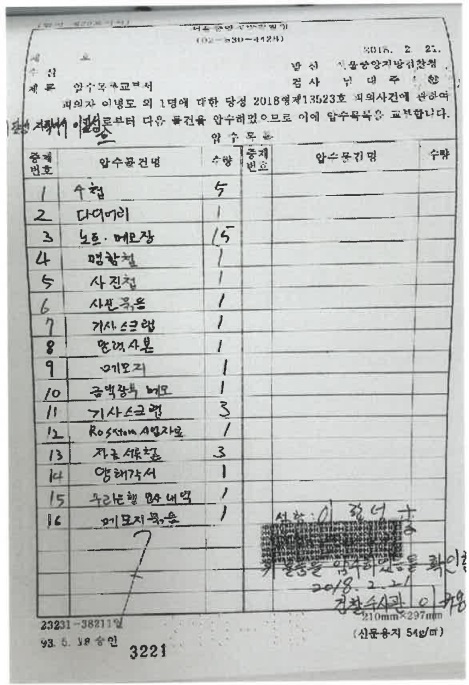 (02-530-4124)
제 호 2018. 2. 21.
수신 발신 서울중앙지방검찰청
제목 압수목록교부서 검사
피의자 외 1명에 대한 당청 2018형제13523호 피의사건에 관하여
로부터 다음 물건을 압수하였으므로 이에 압수목록을 교부합니다.
압수목록
증제번호 압수물건명 수량 증제번호 압수물건명 수량
1 수첩 5
2 다이어리 1
3 노트·메모장 15
4 명함첩 1
5 사진첩 1
6 사본묶음 1
7 기사스크랩 1
8 달력사본 1
9 메모지 1
10 메모 1
11 기사스크랩 3
12 1
13 자금서류철 3
14 양해각서 1
15 우리은행 내역 1
16 메모지묶음 1
성함:
위 물품을 압수하였음을 확인함
2018. 2. 21
검찰수사관
23231-38211일
93. 5. 18 승인
210mm×297mm
(신문용지 54g/㎡)
3221